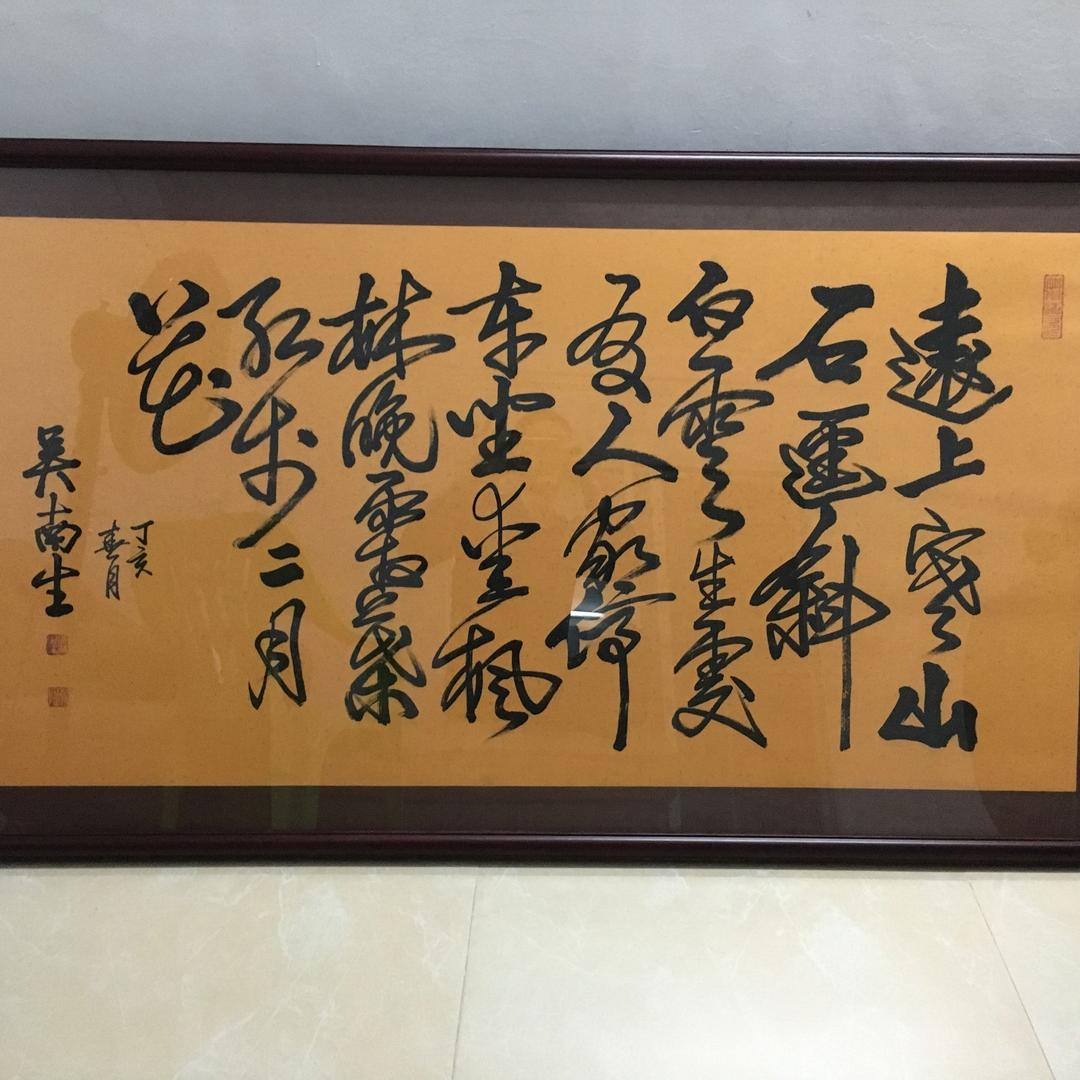 遠上寒山
石逕斜
白雲生處
有人家停
車坐愛楓
林晚霜葉
紅於二月
花
丁亥
春月
吴南生